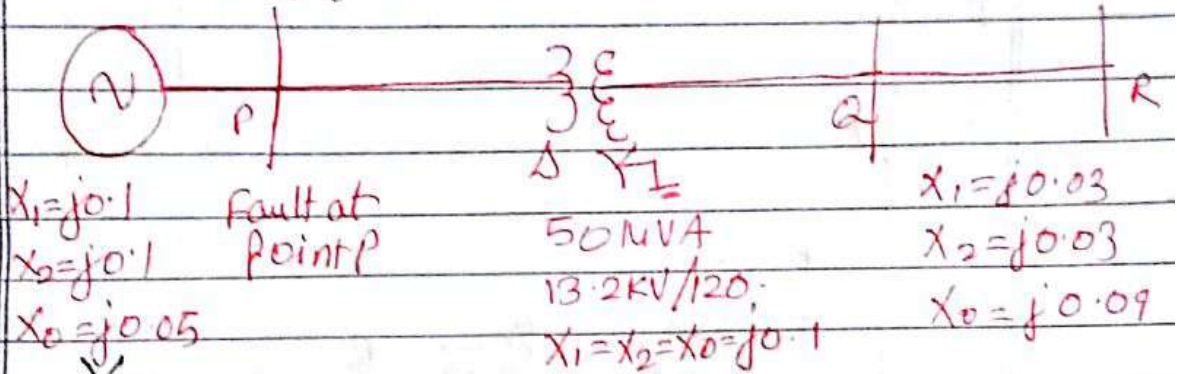 P
Δ
Q
R
X₁=j0.1
X₂=j0.1
X₀=j0.05
Fault at
Point P
50MVA
13.2KV/120.
X₁=X₂=X₀=j0.1
X₁=j0.03
X₂=j0.03
X₀=j0.09